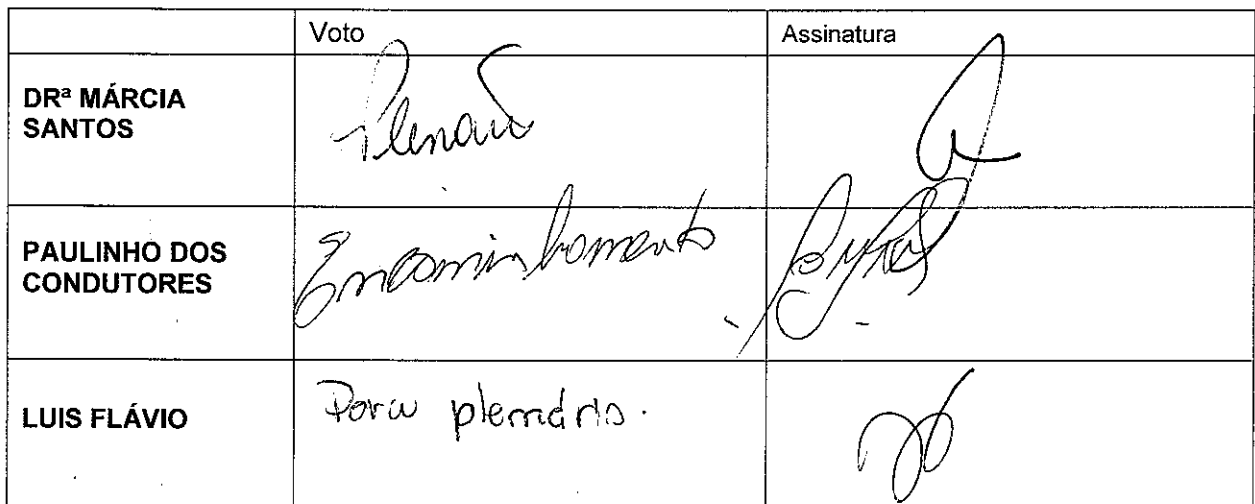 Voto Assinatura
DRª MÁRCIA
SANTOS
Plenário
PAULINHO DOS
CONDUTORES
Encaminhamento
LUIS FLÁVIO
Para plenário.